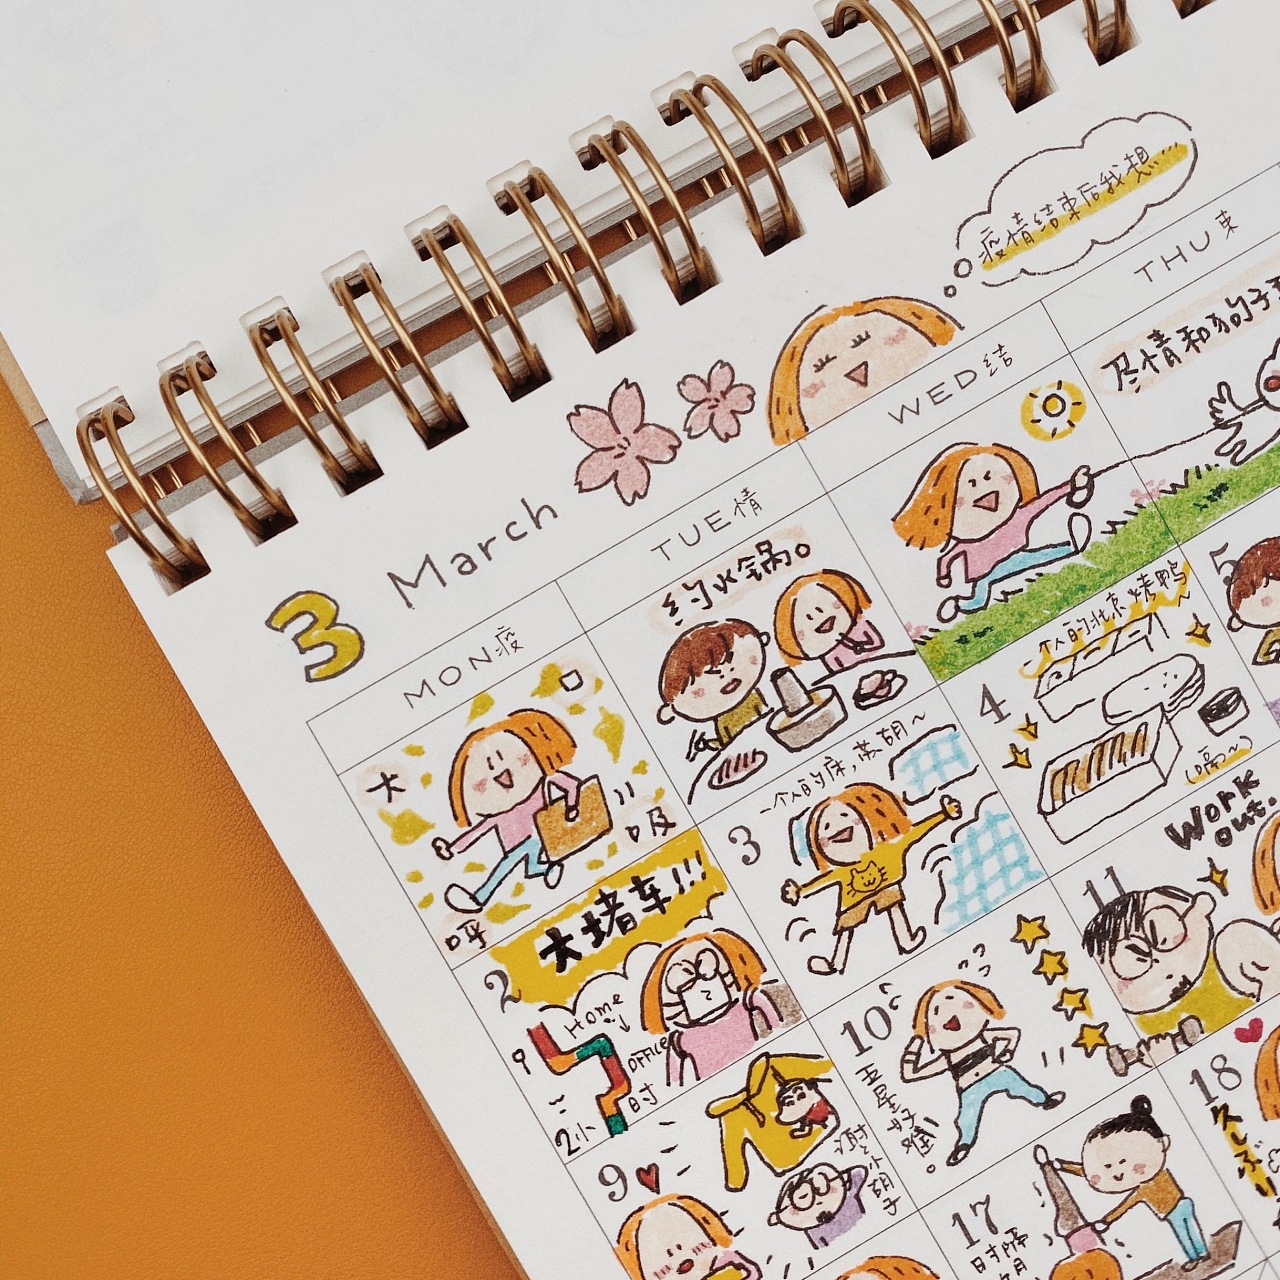 疫情结束后我想……
3 March
MON疫
TUE情
WED结
THU束
大
口及
口乎
约火锅。
尽情和狗子
2
大堵车!!!
Home
↓
OFFICE
2小时
3
一个人的床,蒸胡~
4
一个人的北京烤鸭~
(嗝~)
5
9
谢小胡子
10
五星好腰。
11
Work
out.
17
时隔
18
久しぶり